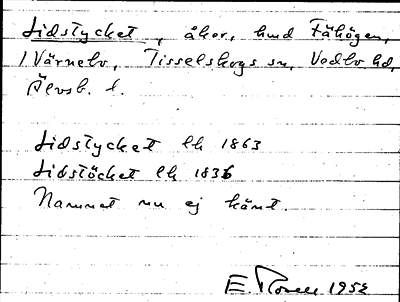 Lidstycket, åker, hmd Fähögen,
1 Värnebo, Tisselskogs sn, Vedbo hd,
Älvsb. l.
Lidstycket lh 1863
Lidstöcket lh 1836
Namnet nu ej känt.
E. Rosell 1952